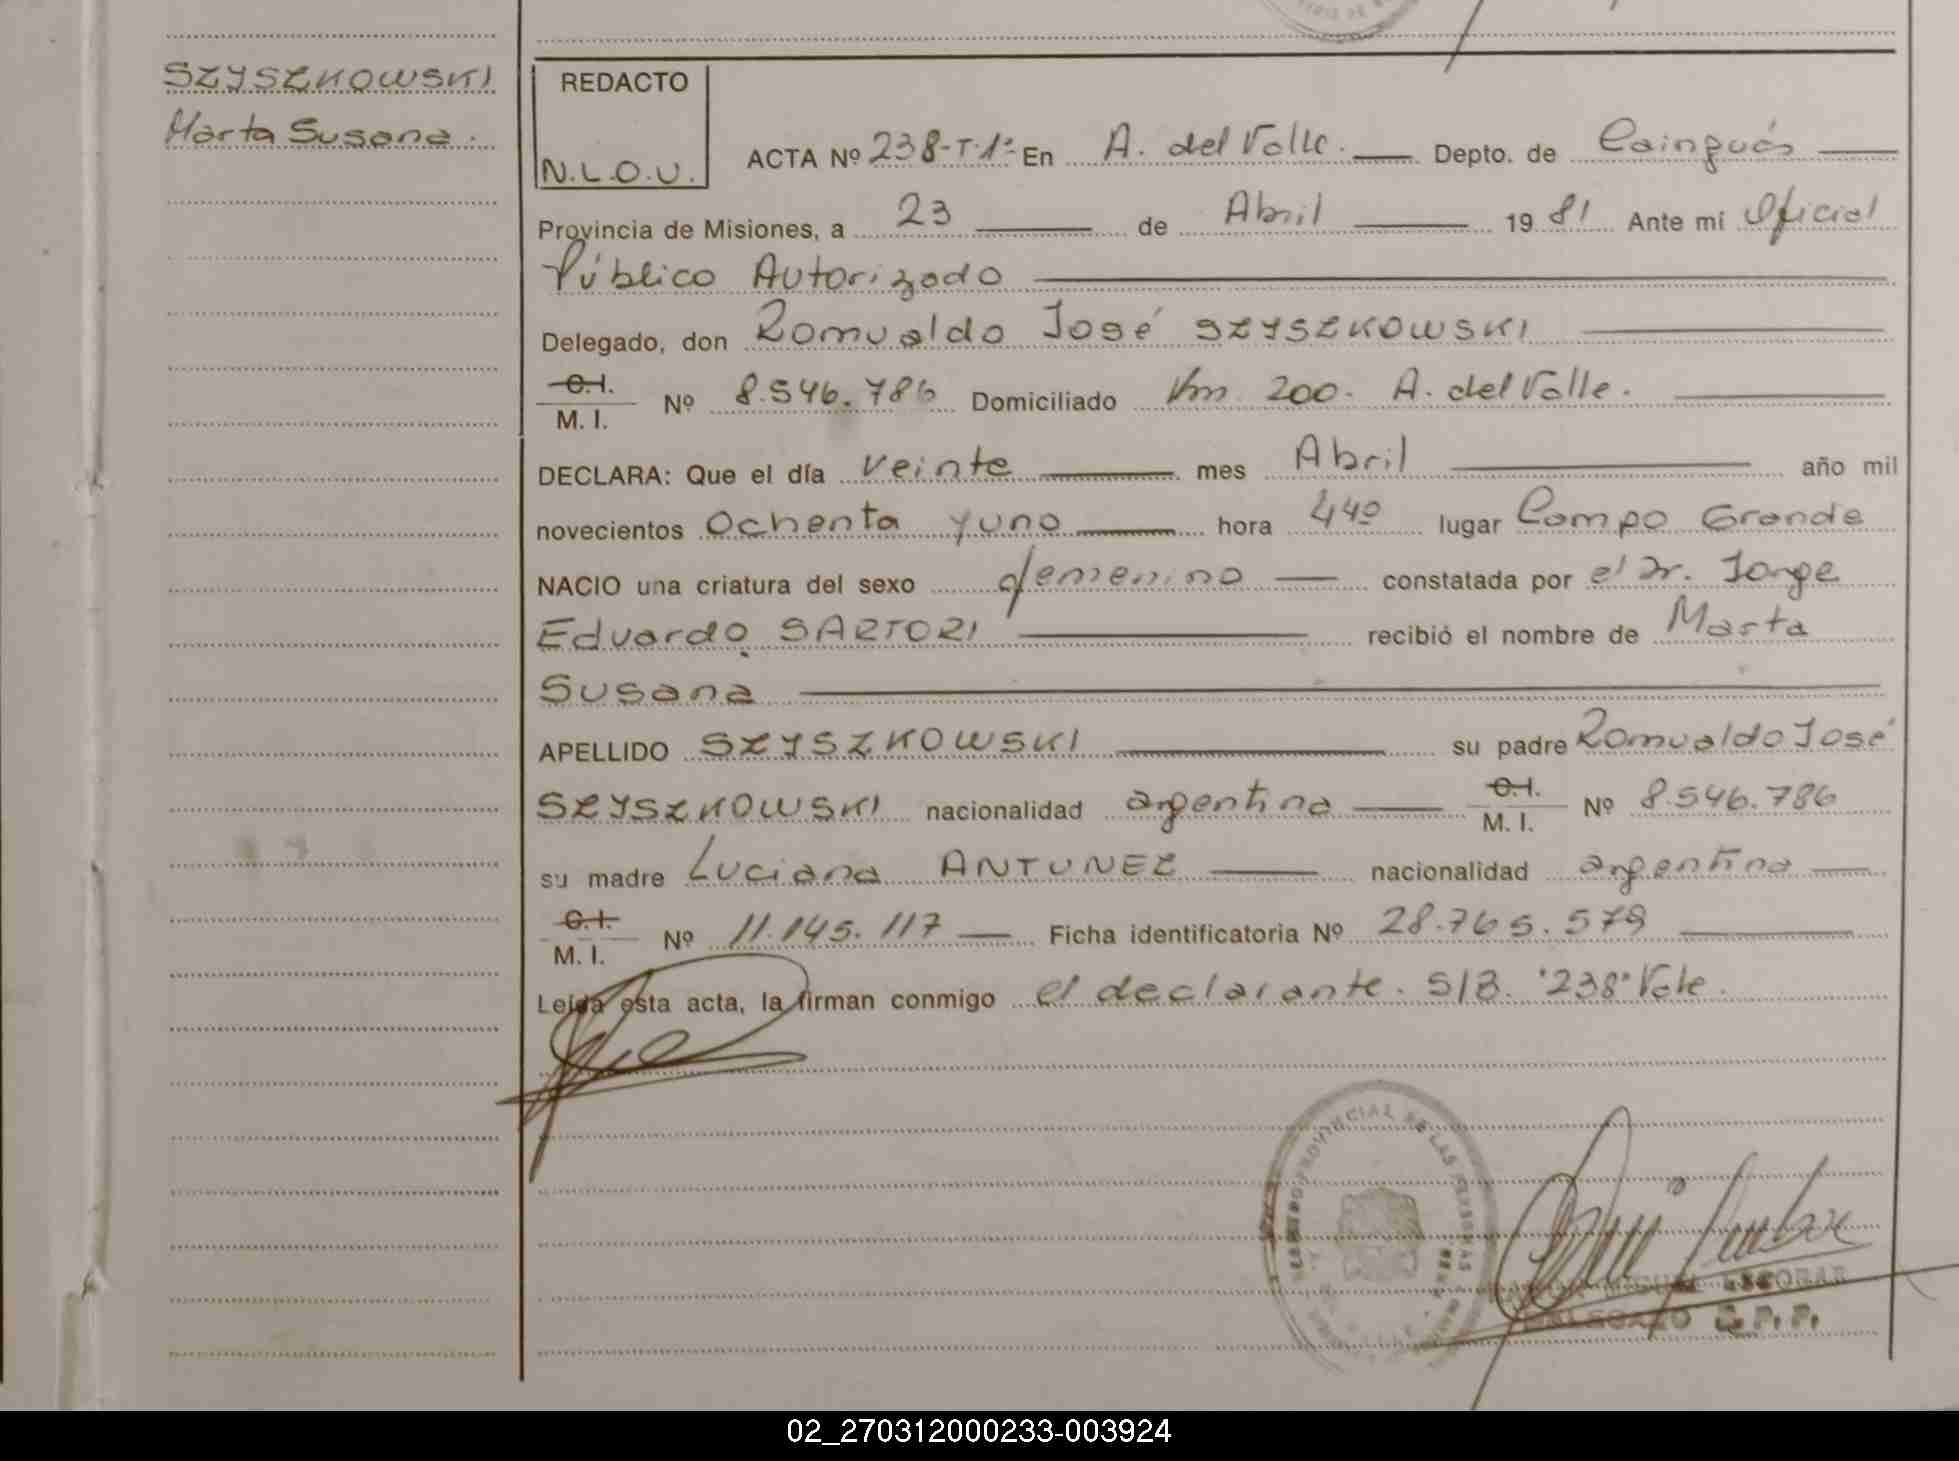 SZYSZKOWSKI
Marta Susana.
REDACTO
N.L.O.U.
ACTA Nº 238-T.1º En A. del Valle. Depto. de Cainguás
Provincia de Misiones, a 23 de Abril 1981 Ante mí Oficial
Público Autorizado
Delegado, don Romualdo José SZYSZKOWSKI
C.I.
M. I. Nº 8.546.786 Domiciliado Km 200. A. del Valle.
DECLARA: Que el día veinte mes Abril año mil
novecientos ochenta y uno hora 4 40 lugar Campo Grande
NACIO una criatura del sexo femenino constatada por el Dr. Jorge
Eduardo SARTORI recibió el nombre de Marta
Susana
APELLIDO SZYSZKOWSKI su padre Romualdo José
SZYSZKOWSKI nacionalidad argentina C.I. M. I. Nº 8.546.786
su madre Luciana ANTUNEZ nacionalidad argentina
C.I.
M. I. Nº 11.145.117 Ficha identificatoria Nº 28.765.579
Leída esta acta, la firman conmigo el declarante. S/B. "238" Vale.
REGISTRO PROVINCIAL DE LAS PERSONAS
MIGUEL ESCOBAR
DELEGADO
02_270312000233-003924